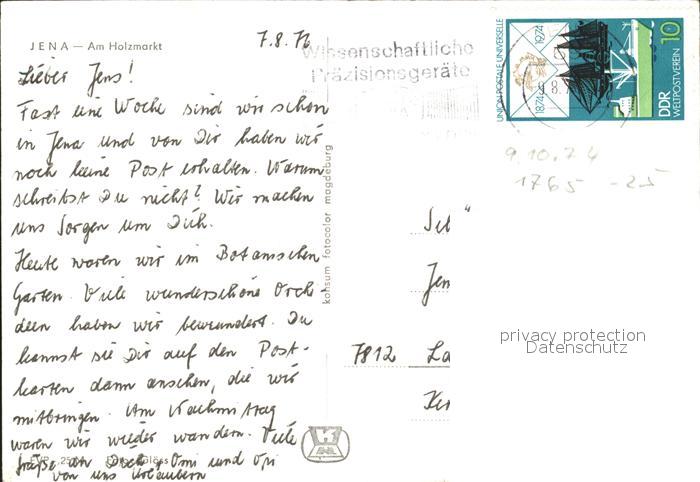 JENA — Am Holzmarkt
7.8.76
Wissenschaftliche
Präzisionsgeräte
UNION POSTALE UNIVERSELLE
1874
1974
10
DDR
WELTPOSTVEREIN
9.10.74
1765 -25
Lieber Jens!
Fast eine Woche sind wir schon
in Jena und von Dir haben wir
noch keine Post erhalten. Warum
schreibst Du nicht? Wir machen
uns Sorgen um Dich.
Heute waren wir im Botanischen
Garten. Viele wunderschöne Orchi-
deen haben wir bewundert. Du
kannst sie Dir auf den Post-
karten dann ansehen, die wir
mitbringen. Am Nachmittag
waren wir wieder wandern. Viele
Grüße an Dich, Omi und Opi
von uns Urlaubern
konsum fotocolor magdeburg
Jen
7812 La
privacy protection
Datenschutz